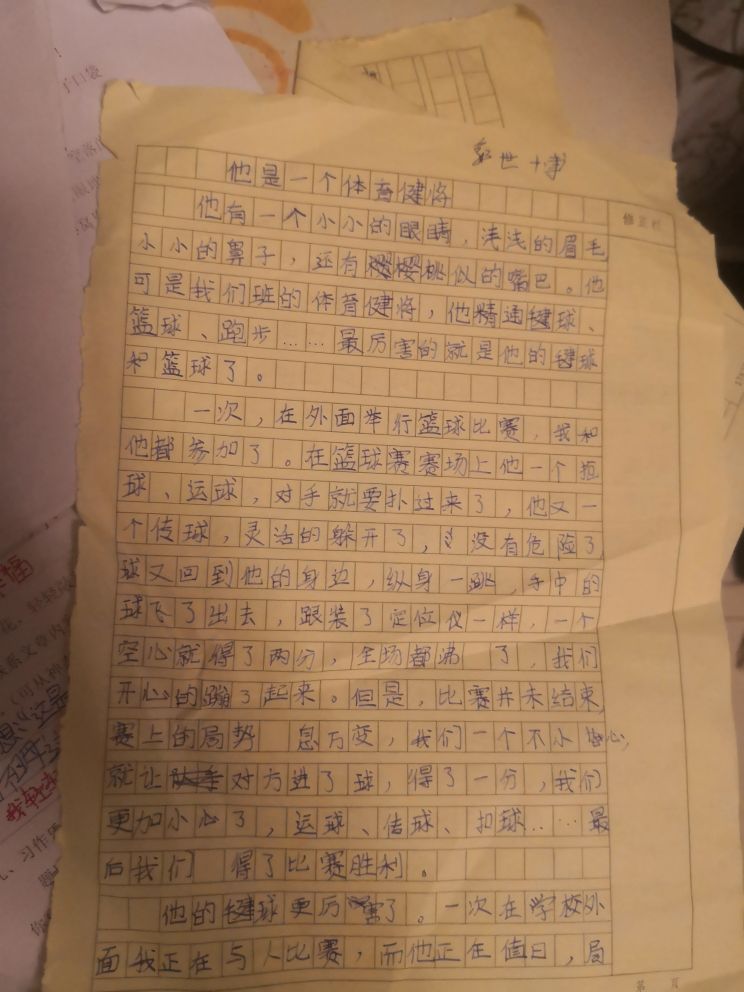 世博
他是一个体育健将
修正栏
他有一个小小的眼睛，浅浅的眉毛
小小的鼻子，还有樱桃似的嘴巴。他
可是我们班的体育健将，他精通毽球、
篮球、跑步……最厉害的就是他的毽球
和篮球了。
一次，在外面举行篮球比赛，我和
他都参加了。在篮球赛赛场上他一个
球、运球，对手就要扑过来了，他又一
个传球，灵活的躲开了，没有危险了
球又回到他的身边，纵身一跳，手中的
球飞了出去，跟装了定位仪一样，一个
空心就得了两分，全场都沸 了，我们
开心的蹦了起来。但是，比赛并未结束，
赛上的局势 息万变，我们一个不小心，
就让对方进了球，得了一分，我们
更加小心了，运球、传球、扣球……最
后我们 得了比赛胜利。
他的毽球更厉害了。一次在学校外
面我正在与人比赛，而他正在值日，局
第 页